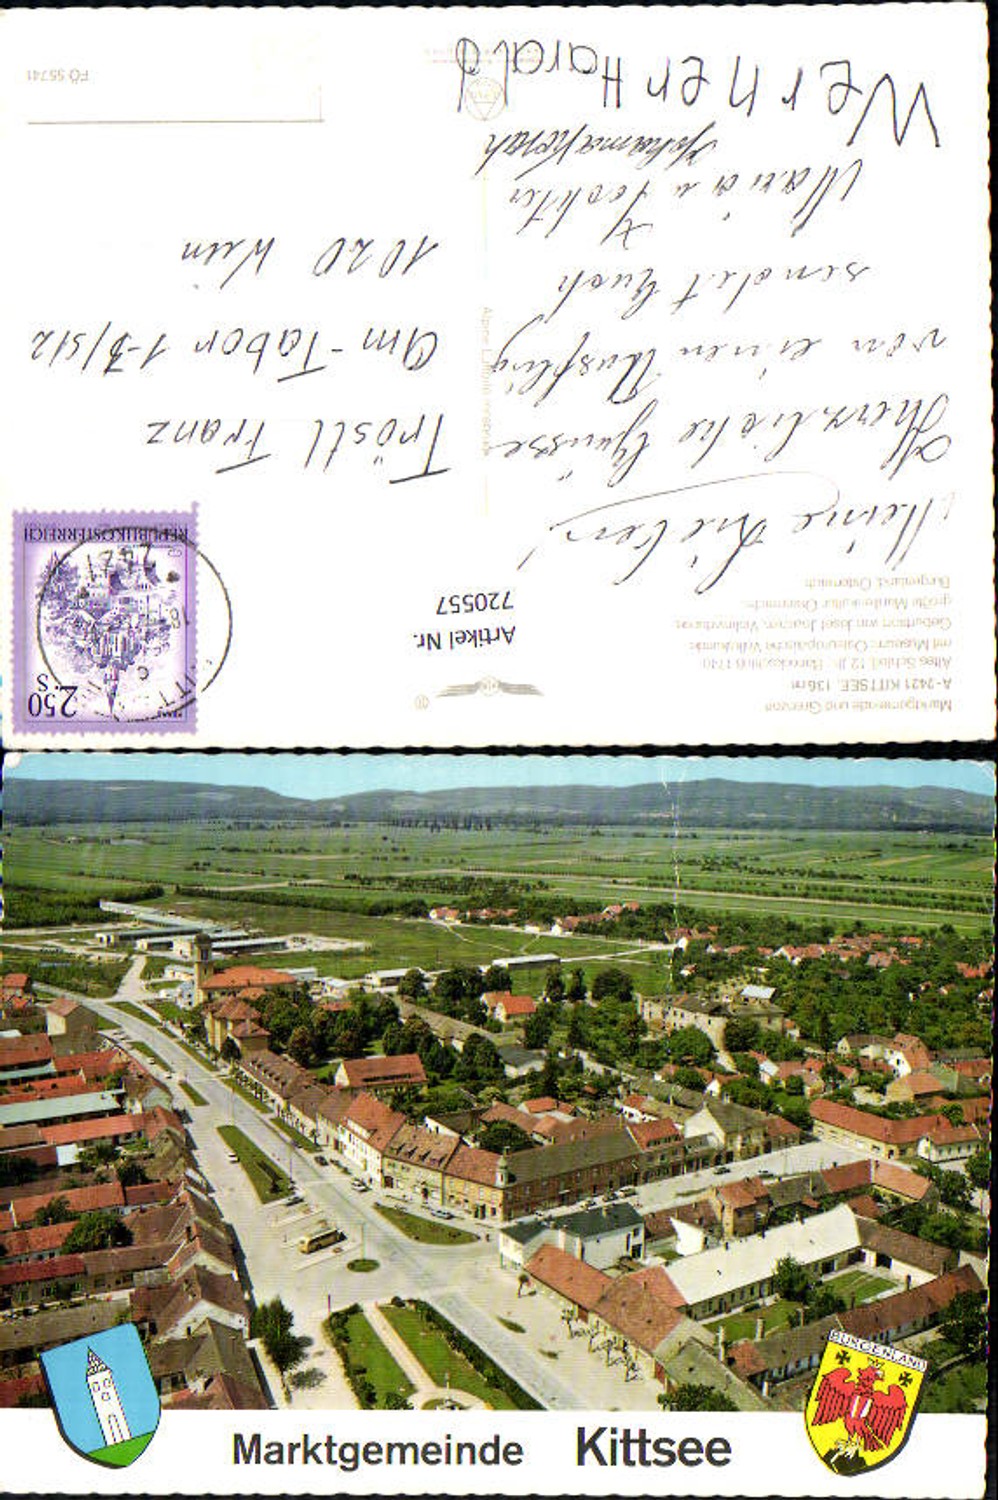 Marktgemeinde und Grenzort
A-2421 KITTSEE, 136 m
Altes Schloß 12. Jh., Barockschloß 1740
mit Museum: Osteuropäische Volkskunde
Geburtsort von Josef Joachim, Violinvirtuose
große Marillenkultur, Österreich
Burgenland, Österreich
Artikel Nr.
720557
Meine Lieben!
Herzliche Grüsse
von einen Ausflug
sendet Euch
Maria u Tochter
Johanna
Werner Harald
Alpine Luftbild
2.50
S
REPUBLIK ÖSTERREICH
Tröstl Franz
Am-Tabor 1-3/5/2
1020 Wien
FÖ 55741
BURGENLAND
Marktgemeinde Kittsee